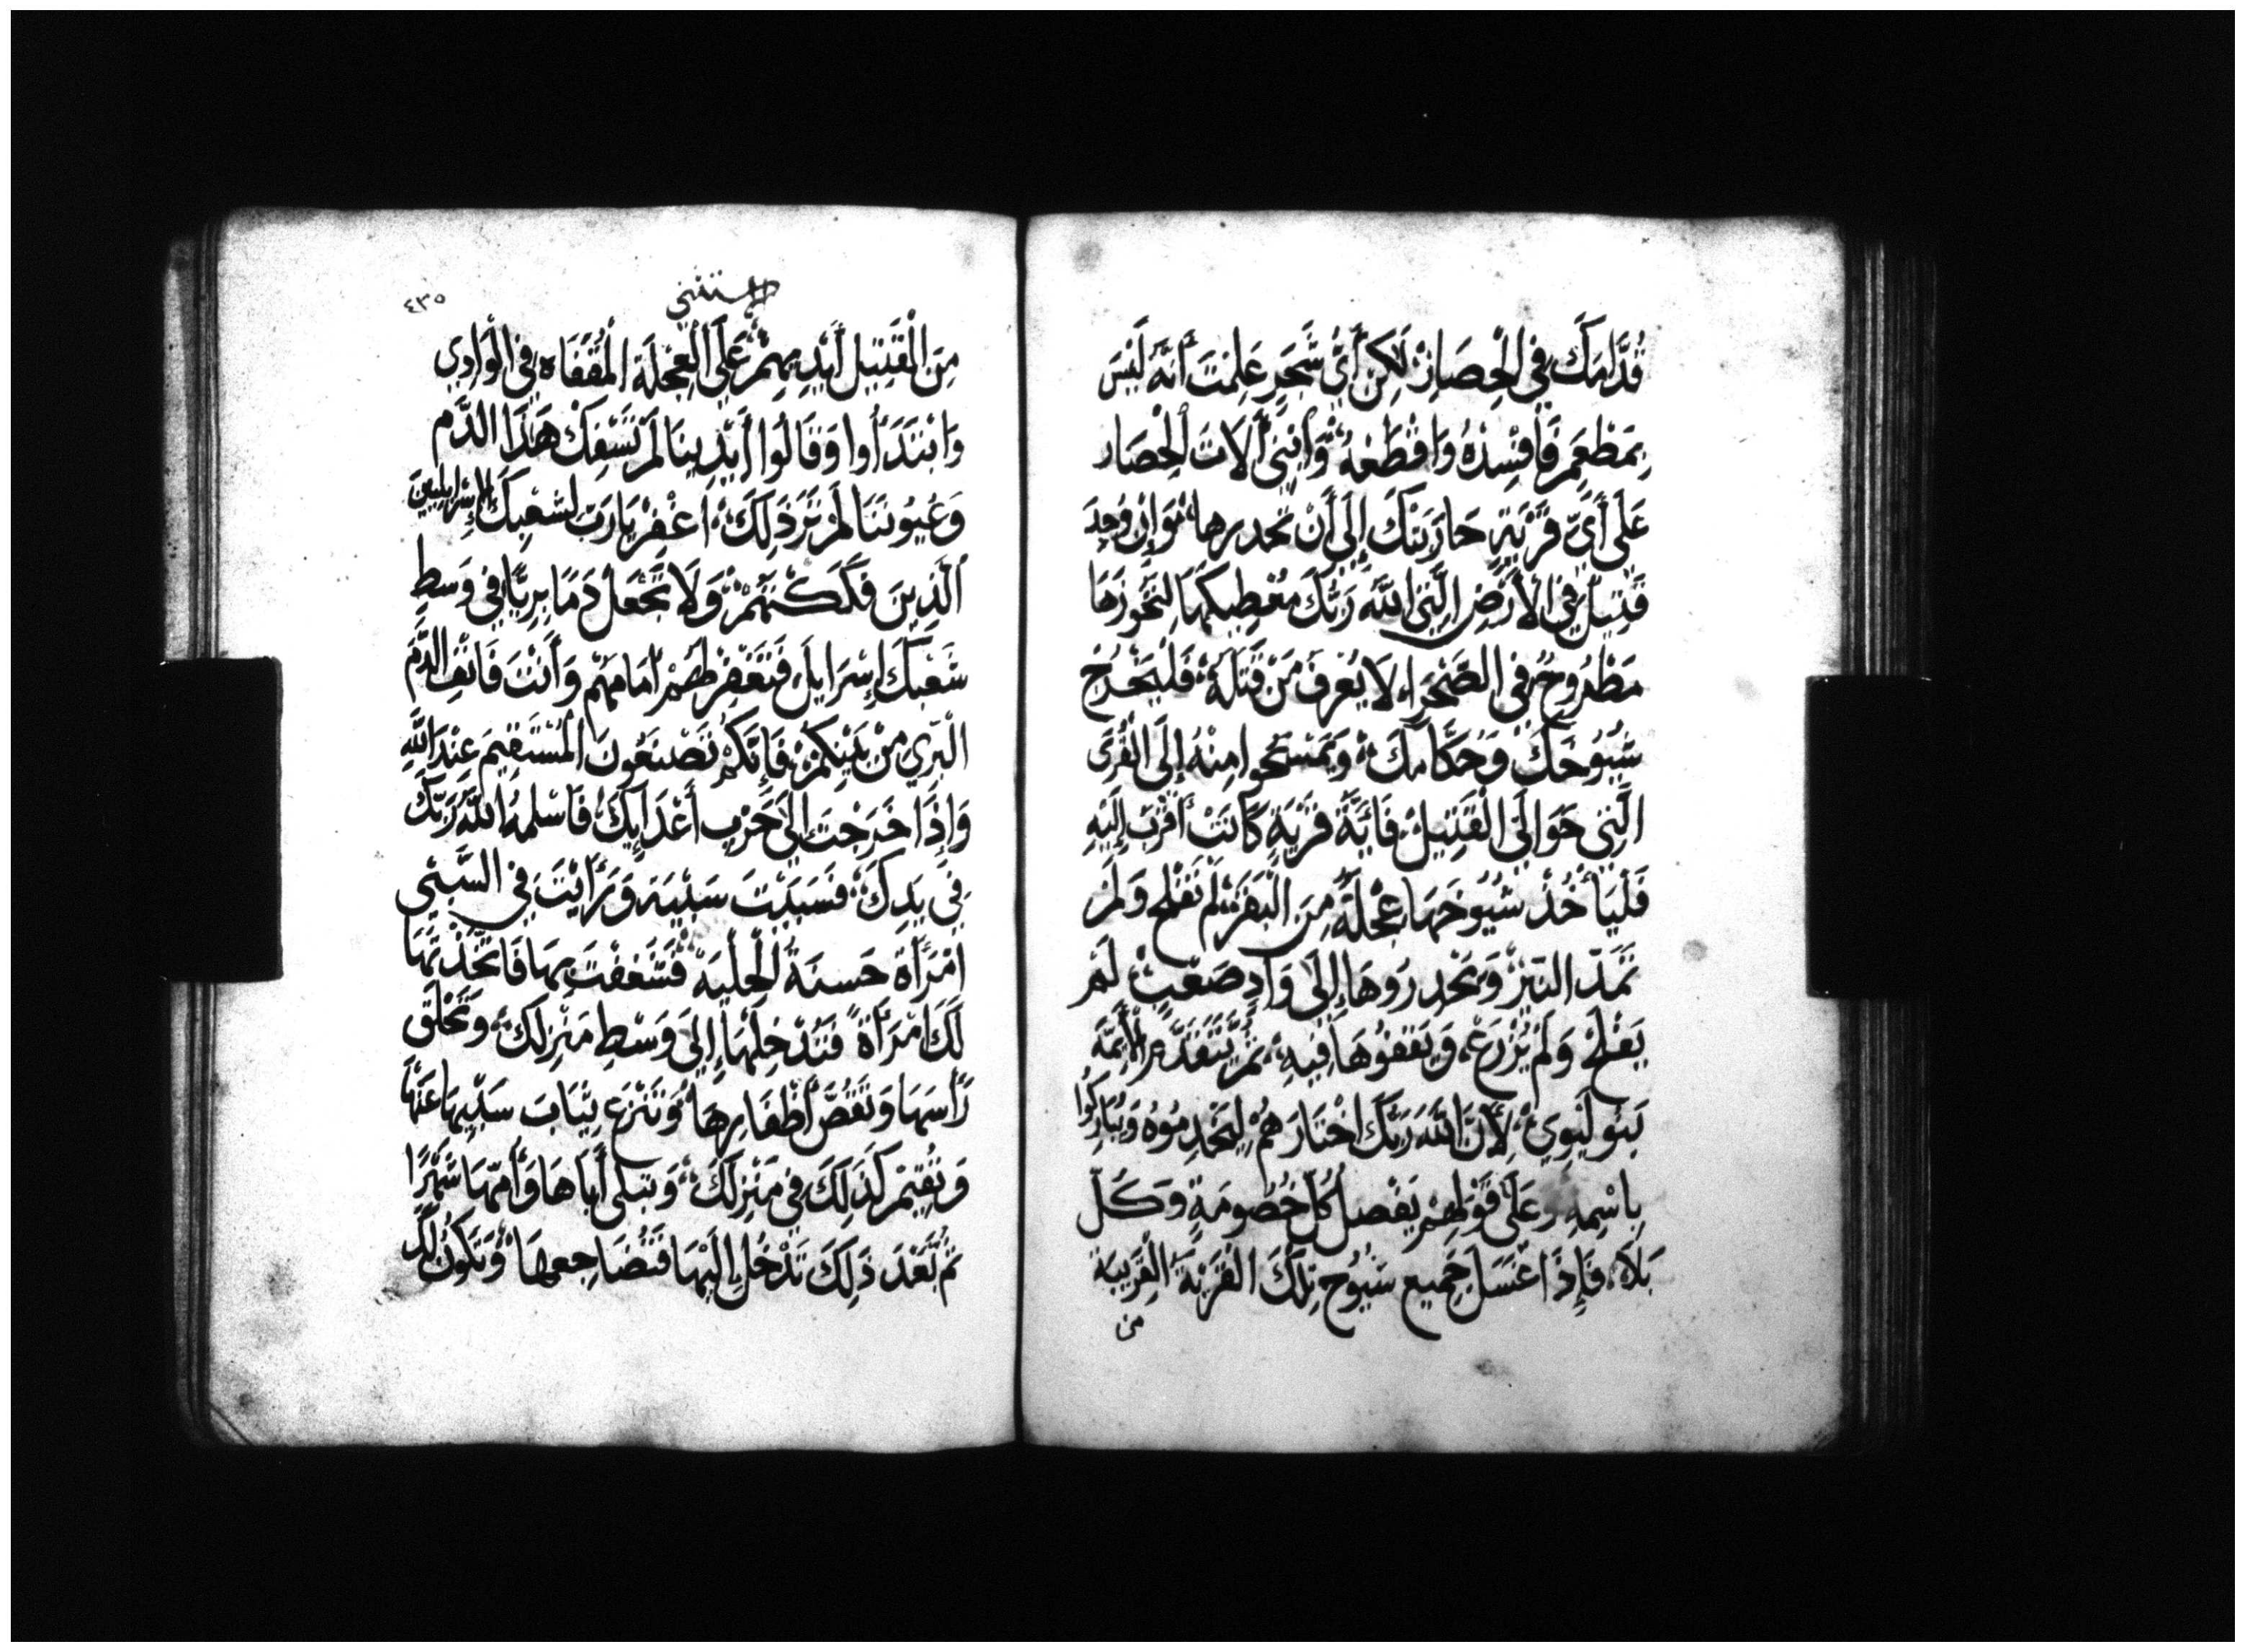 قُدَّامَكَ فِي الْحِصَارِ لَكِنْ أَيُّ شَجَرٍ عَلِمْتَ أَنَّهُ لَيْسَ
بِمَطْعَمٍ فَأَفْسِدْهُ وَاقْطَعْهُ وَابْنِي آلَاتَ الْحِصَار
عَلَى أَيِّ قَرْيَةٍ حَارَبَتْكَ إِلَى أَنْ تحدرها وَإِنْ وُجِدَ
قَتِيلٌ فِي الْأَرْضِ الَّتِي اللَّهُ رَبُّكَ مُعْطِيكَهَا لِتَحُوزَهَا
مَطْرُوحٌ فِي الصَّحْرَاءِ لَا يُعْرَفُ مَنْ قَتَلَهُ فَلْيَخْرُجْ
شُيُوخُكَ وَحُكَّامُكَ وَيَمْسَحُوا مِنْهُ إِلَى الْقُرَى
الَّتِي حَوَالَيِ الْقَتِيلِ فَأَيَّةُ قَرْيَةٍ كَانَتْ أَقْرَبَ إِلَيْهِ
فَلْيَأْخُذْ شُيُوخُهَا عِجْلَةً مِنَ الْبَقَرِ لَمْ تَفْلَحْ وَلَمْ
تَمُدَّ النِّيرَ وَيَحْدِرُوهَا إِلَى وَادٍ صَعْبٍ لَمْ
يَفْلَحْ وَلَمْ يُزْرَعْ وَيَقْفُوهَا فِيهِ ثُمَّ يَتَقَدَّمُ الْأَئِمَّةُ
بَنُو لَيْوِي لِأَنَّ اللَّهَ رَبَّكَ اخْتَارَهُمْ لِيَخْدِمُوهُ وَيُبَارِكُوا
بِاسْمِهِ وَعَلَى قَوْلِهِمْ يَفْصِلُ كُلُّ خُصُومَةٍ وَكُلُّ
بَلَاءٍ فَإِذَا غَسَلَ جَمِيع شُيُوخِ تِلْكَ الْقَرْيَةِ الْقَرِيبَةِ
من
٤٣٥
الاستثني
مِنَ الْقَتِيلِ أَيْدِيهِمْ عَلَى الْعِجْلَةِ الْمُقْفَاةِ فِي الْوَادِي
وَابْتَدَأُوا وَقَالُوا أَيْدِينَا لَمْ تَسْفِكْ هَذَا الدَّم
وَعُيُونَنَا لَمْ تَرَ ذَلِكَ اغْفِرْ يَا رَبِّ لِشَعْبِكَ الْإِسْرَائِلِيِينَ
الَّذِينَ فَكَكْتَهُمْ وَلَا تَجْعَلْ دَمًا بَرِيًّا فِي وَسَطِ
شَعْبِكَ إِسْرَايِلَ فَتَغْفِرُ لَهُمْ آثَامَهُمْ وَأَنْتَ فَانْفِ الدَّمَ
الْبَرِي مِنْ بَيْنِكُمْ فَإِنَّكُمْ تَصْنَعُونَ الْمُسْتَقِيمَ عِنْدَ اللَّهِ
وَإِذَا خَرَجْتَ إِلَى حَرْبِ أَعْدَايِكَ فَأَسْلَمَهُ اللَّهُ رَبُّكَ
فِي يَدِكَ فَسَبَيْتَ سَبْيَهُ وَرَأَيْتَ فِي السَّبْيِ
امْرَأَةً حَسَنَةَ الْحِلْيَةِ فَشَغَفْتَ بِهَا فَاتَّخَذْتَهَا
لَكَ امْرَأَةً فَتُدْخِلُهَا إِلَى وَسَطِ مَنْزِلِكَ وَتَحْلِقُ
رَأْسَهَا وَتَقُصُّ أَظْفَارَهَا وَتَنْزِعُ ثِيَابَ سَبْيِهَا عَنْهَا
وَتُقِيمُ كَذَلِكَ فِي مَنْزِلِكَ وَتَبْكِي أَبَاهَا وَأُمَّهَا شَهْرًا
ثُمَّ بَعْدَ ذَلِكَ تَدْخُلُ إِلَيْهَا فَتُضَاجِعُهَا وَتَكُونُ لَكَ